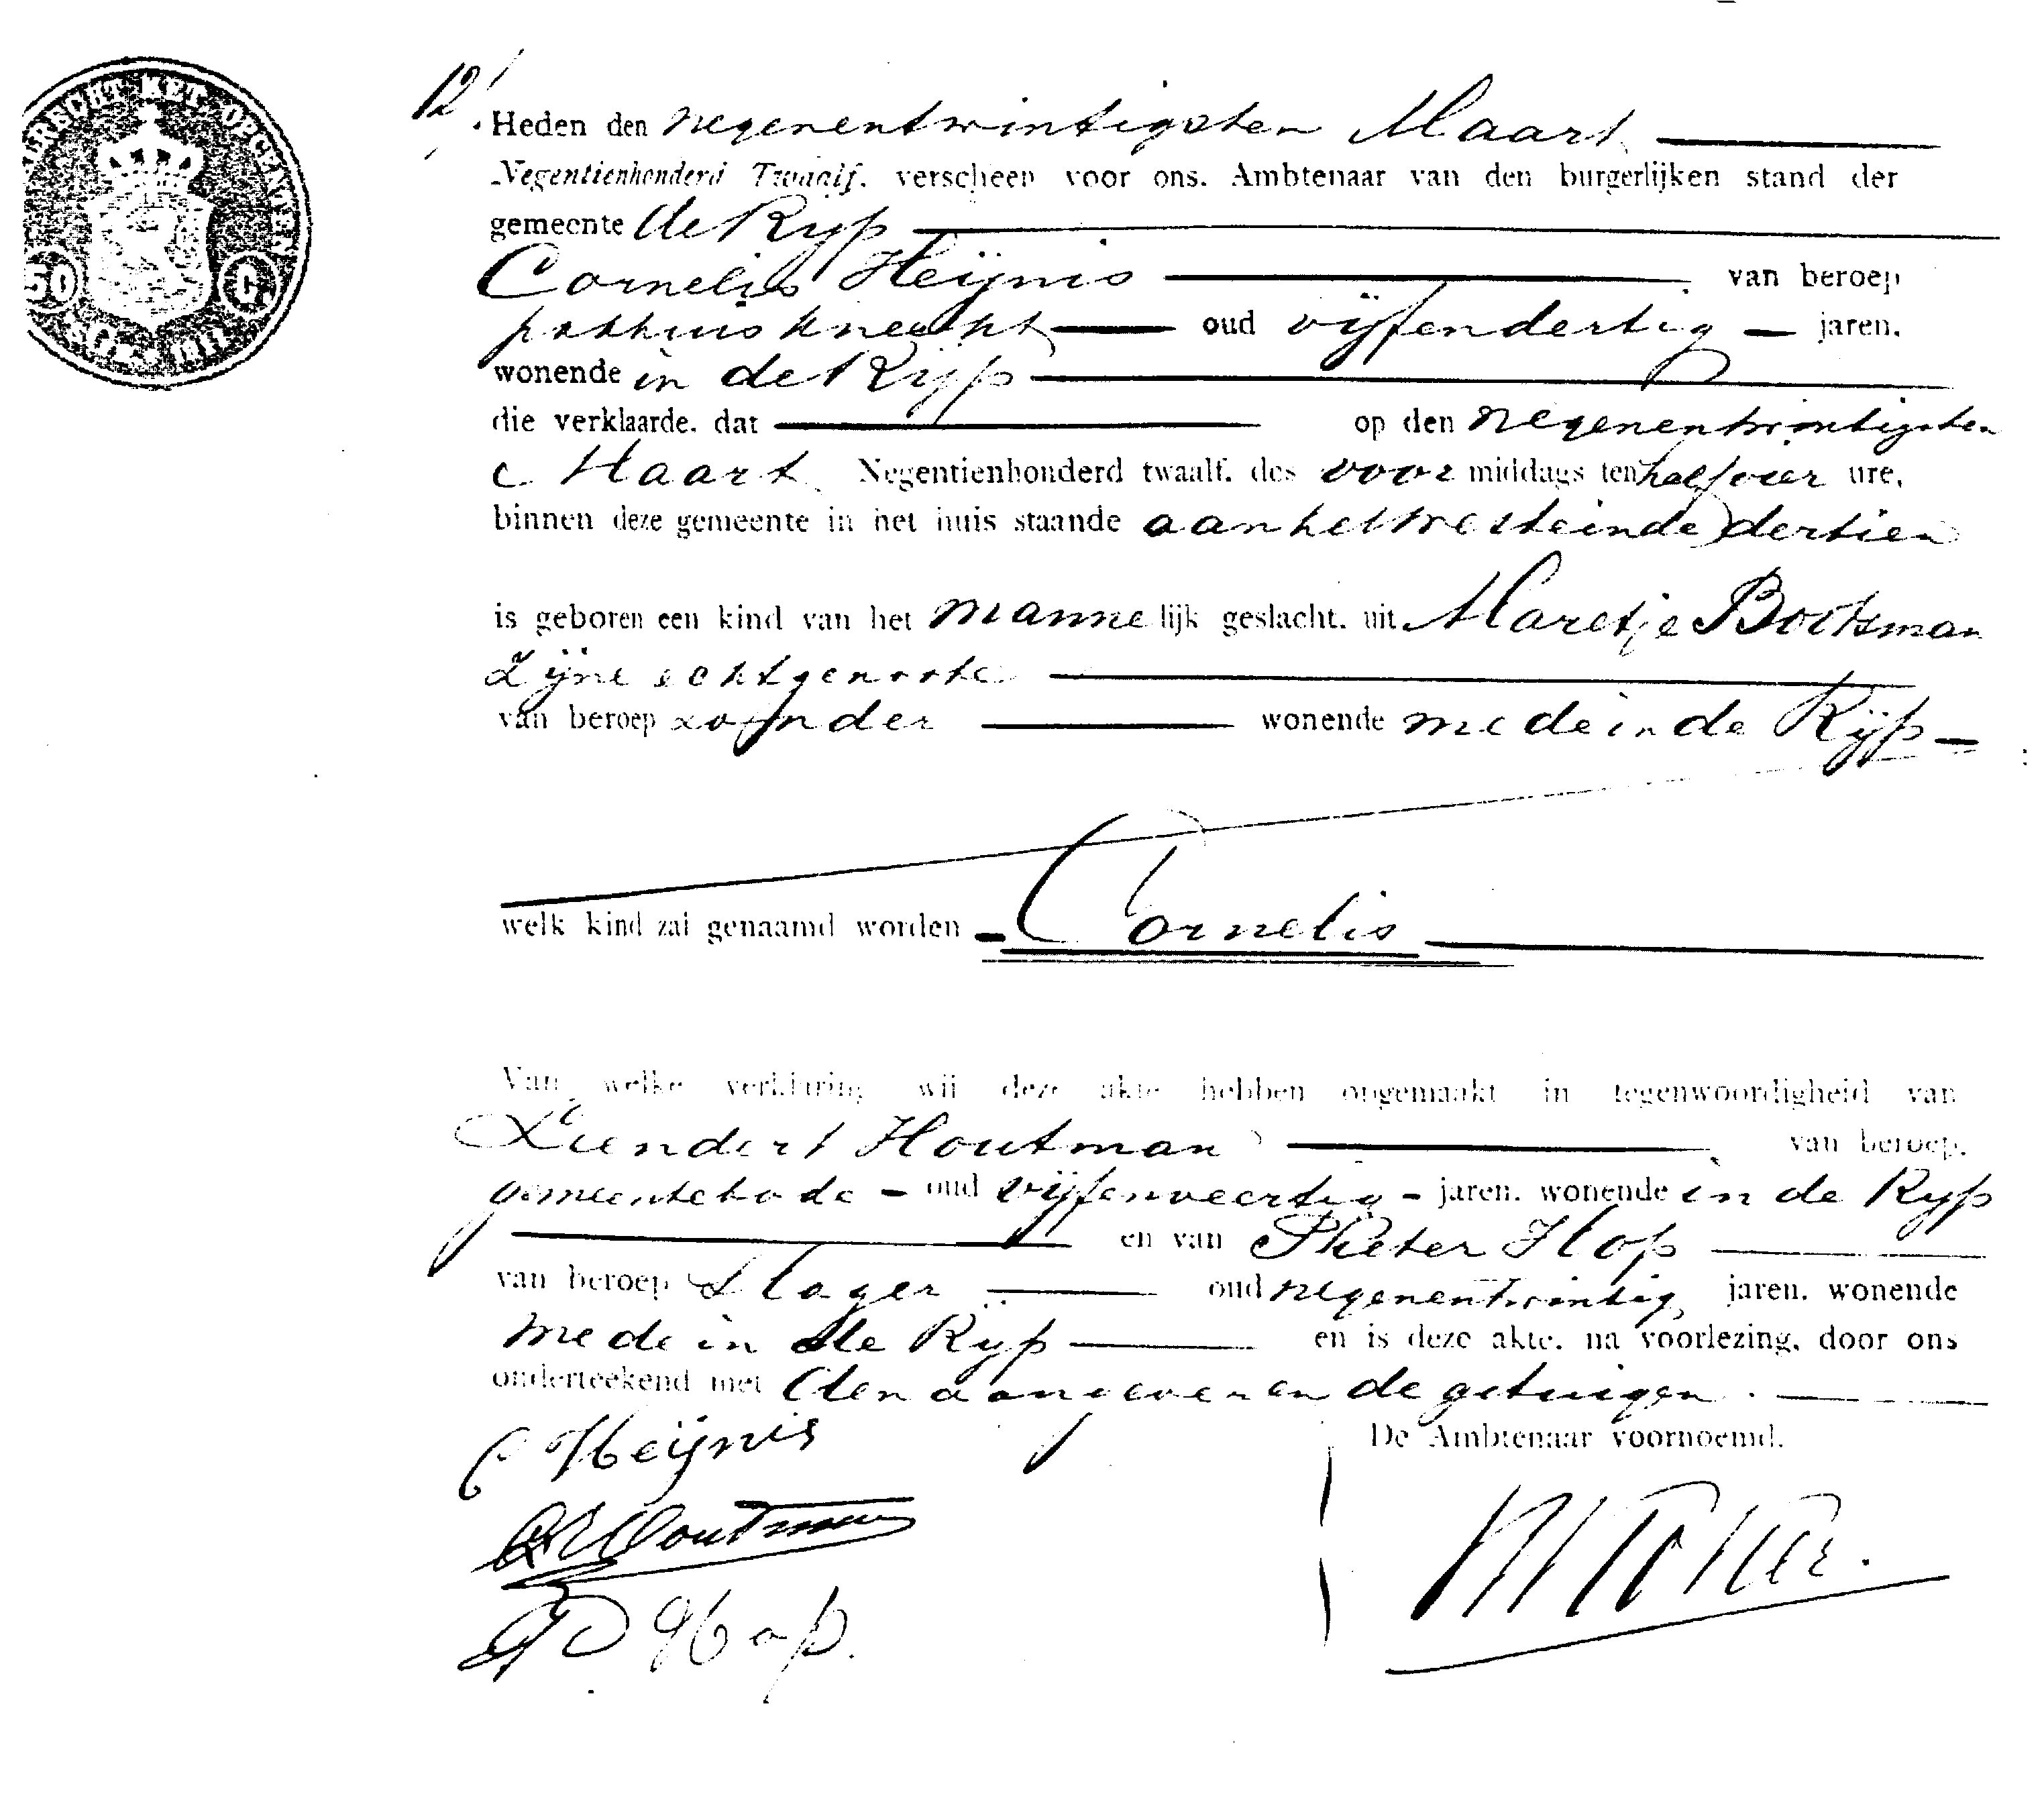 RECHT MET OPCENTEN
50 C.
12
Heden den negenentwintigsten Maart
Negentienhonderd Twaalf, verscheen voor ons, Ambtenaar van den burgerlijken stand der
gemeente de Ryp
Cornelis Heijnis van beroep
pakhuisknecht oud vijfendertig jaren,
wonende in de Rijp
die verklaarde, dat op den negenentwintigsten
Maart Negentienhonderd twaalf, des voor middags ten half vier ure,
binnen deze gemeente in het huis staande aan het Westeinde dertien
is geboren een kind van het manne lijk geslacht, uit Maretje Bootsman
Zijne echtgenoote
van beroep zonder wonende mede in de Rijp
welk kind zal genaamd worden Cornelis
Van welke verklaring wij deze akte hebben opgemaakt in tegenwoordigheid van
Leendert Houtman van beroep,
gemeentebode - oud vijfenveertig - jaren, wonende in de Ryp
en van Pieter Hop
van beroep Slager oud negenentwintig jaren, wonende
mede in de Rijp en is deze akte, na voorlezing, door ons
onderteekend met den aangever en de getuigen.
C Heijnis
De Ambtenaar voornoemd,
Houtman
P Hop.